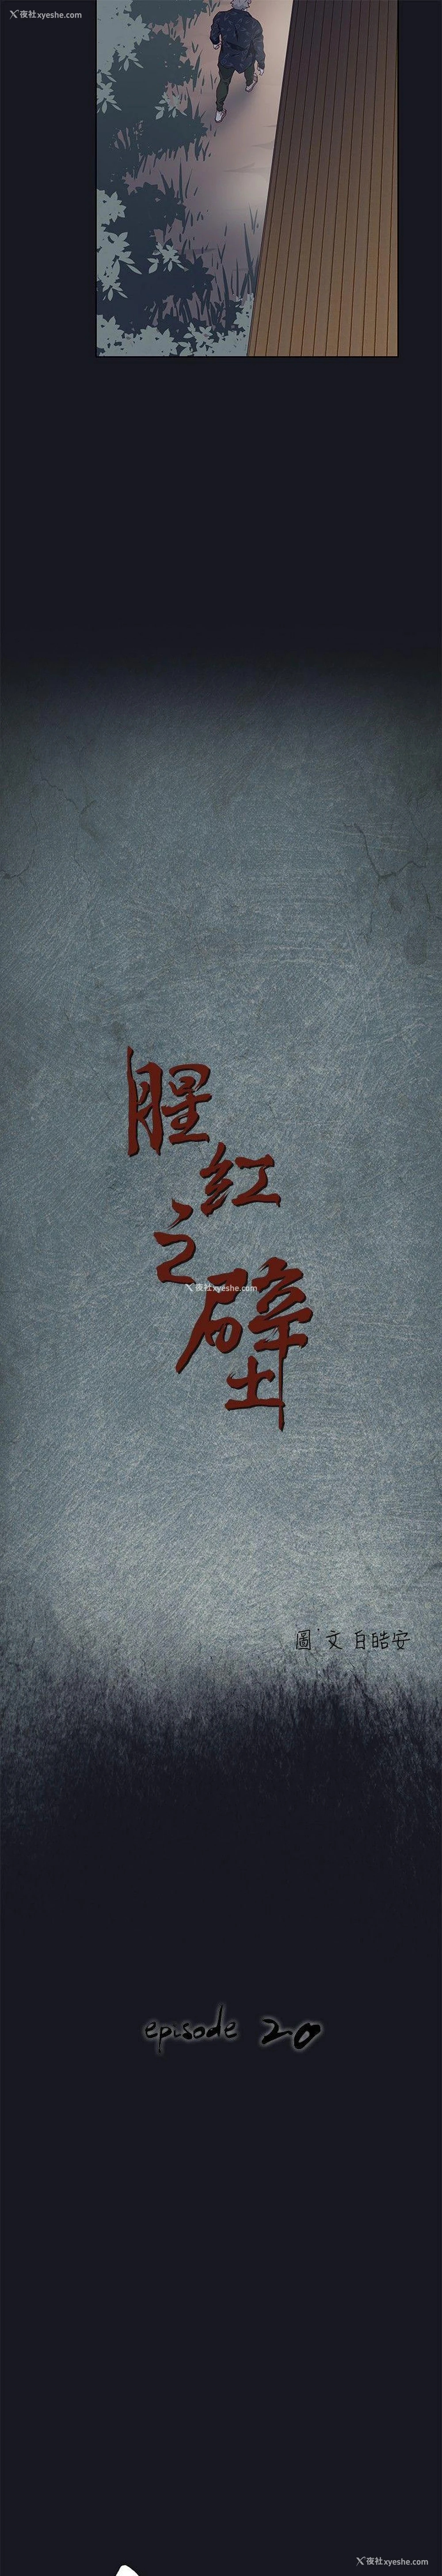 夜社xyeshe.com
腥
紅
之
壁
夜社xyeshe.com
圖˙文 白皓安
episode 20
夜社xyeshe.com